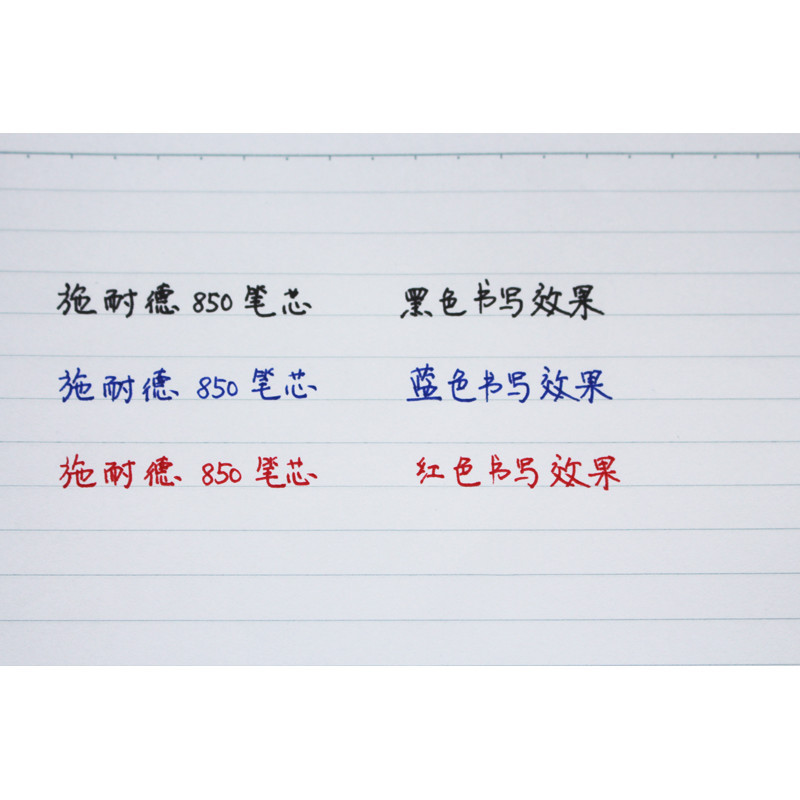 施耐德 850 笔芯 黑色书写效果
施耐德 850 笔芯 蓝色书写效果
施耐德 850 笔芯 红色书写效果